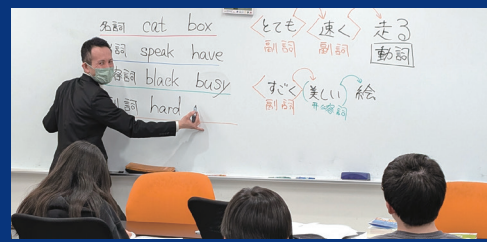 名詞 cat box
詞 speak have
容詞 black busy
詞 hard
とても 速く 走る
副詞 副詞 動詞
すごく 美しい 絵
副詞 形容詞